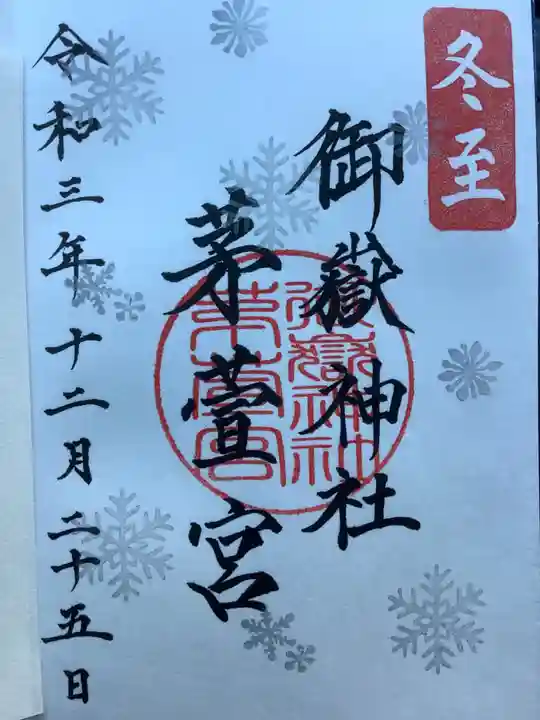 冬至
御嶽神社
茅萱宮
令和三年十二月二十五日
御嶽神社
茅萱宮